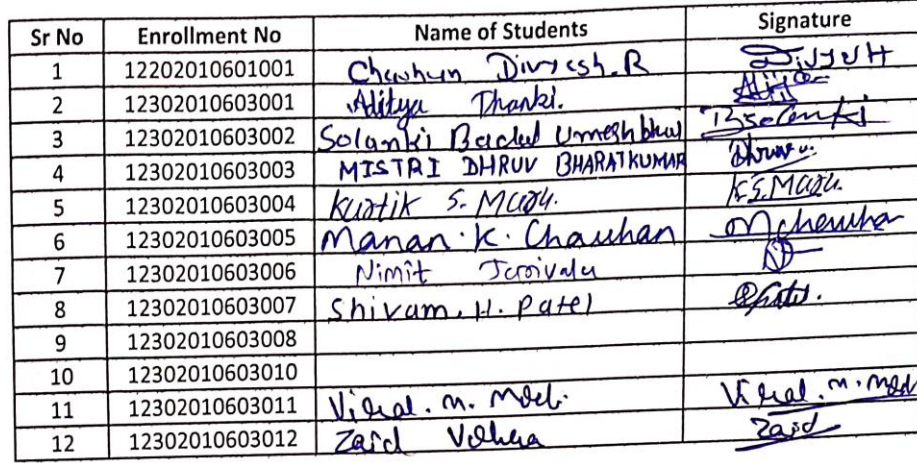 Sr No Enrollment No Name of Students Signature
1 12202010601001 Chauhan Divyesh.R Divyesh
2 12302010603001 Aditya Thanki. Aditya
3 12302010603002 Solanki Badal Umeshbhai Bsolanki
4 12302010603003 MISTRI DHRUV BHARATKUMAR Dhruv
5 12302010603004 Kartik S. Maru. K.S.Maru.
6 12302010603005 Manan.K. Chauhan Mchauhan
7 12302010603006 Nimit
8 12302010603007 Shivam.H.Patel
9 12302010603008
10 12302010603010
11 12302010603011 Viral.M.Modi. Viral.M.Modi
12 12302010603012 Zaid Vohra Zaid